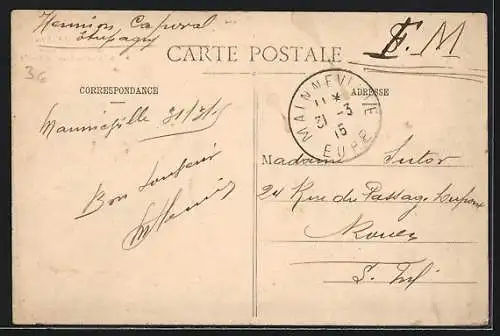 Hennion Caporal
Etrepagny
F. M
CARTE POSTALE
36
CORRESPONDANCE
ADRESSE
MAINNEVILLE
11 *
31 -3
15
EURE
31/3/15
Madame Sutor
24 Rue du Passage Dupont
Rouen
S. Inf
Bon Souvenir